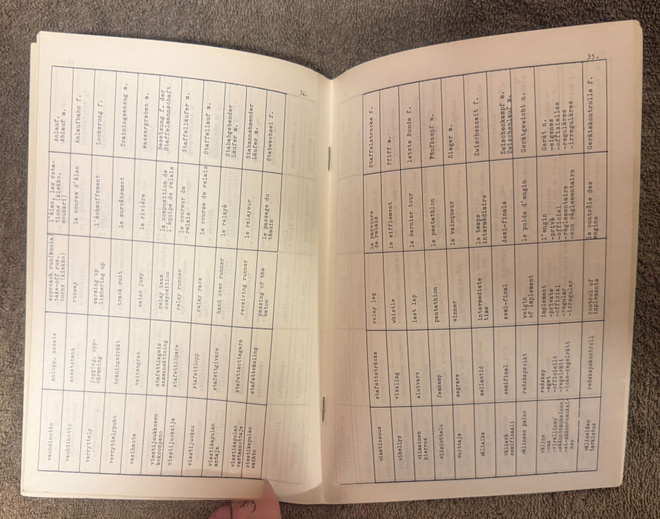 34.
vauhdinotto
anlopp, ansats
approach run(kuula)
take-off run,
turns (kiekko)
l'élan, les rota-
tions (kiekko,
moukari)
Anlauf,
Anlauf m.
vauhdinotto
ansatsbana
runway
la course d'élan
Anlaufbahn f.
verryttely
jogging, upp-
värmning
warming up
limbering up
l'échauffement
Lockerung f.
verryttelypuku
träningsdräkt
track suit
le survêtement
Trainingsanzug m.
vesihauta
vattengrav
water jump
la rivière
Wassergraben m.
viestijoukkueen
kokoonpano
stafettlagets
sammansättning
relay team
composition
la composition de
l'équipe de relais
Besetzung f. der
Staffelmannschaft
viestinjuoksija
stafettlöpare
relay runner
le coureur de
relais
Staffelläufer m.
viestijuoksu
stafettlopp
relay race
la course de relais
Staffellauf m.
viestikapulan
antaja
stafettgivare
hand over runner
le relayé
Stabübergebender
Läufer m.
viestikapulan
vastaanottaja
stafettmottagare
receiving runner
le relayeur
Stabnehmender
Läufer m.
viestikapulan
vaihto
stafettväxling
passing of the
baton
le passage du
témoin
Stabwechsel f.
35.
viestiosuus
stafettsträcka
relay leg
le parcours
de relais
Staffelstrecke f.
vihellys
vissling
whistle
le sifflement
Pfiff m.
viimeinen
kierros
slutvarv
last lap
le dernier tour
letzte Runde f.
viisiottelu
femkamp
pentathlon
le pentathlon
Fünfkampf m.
voittaja
segrare
winner
le vainqueur
Sieger m.
väliaika
mellantid
intermediate
time
le temps
intermédiaire
Zwischenzeit f.
välierä
semifinaali
semifinal
semi-final
demi-finale
Zwischenkampf m.
Zwischenlauf m.
välineen paino
redskapsvikt
weight
of implement
le poids d'engin
Gerätgewicht n.
väline
-oma
redskap
-eget
-officiellt
implement
-private
-official
-regular
-irregular
l'engin
-privé
-officiel
-réglementaire
-non réglementaire
Gerät n.
-eigenes
-offizielles
-reguläres
-irreguläres
välineiden
tarkistus
redskapskontroll
control of
implements
le contrôle des
engins
Gerätekontrolle f.